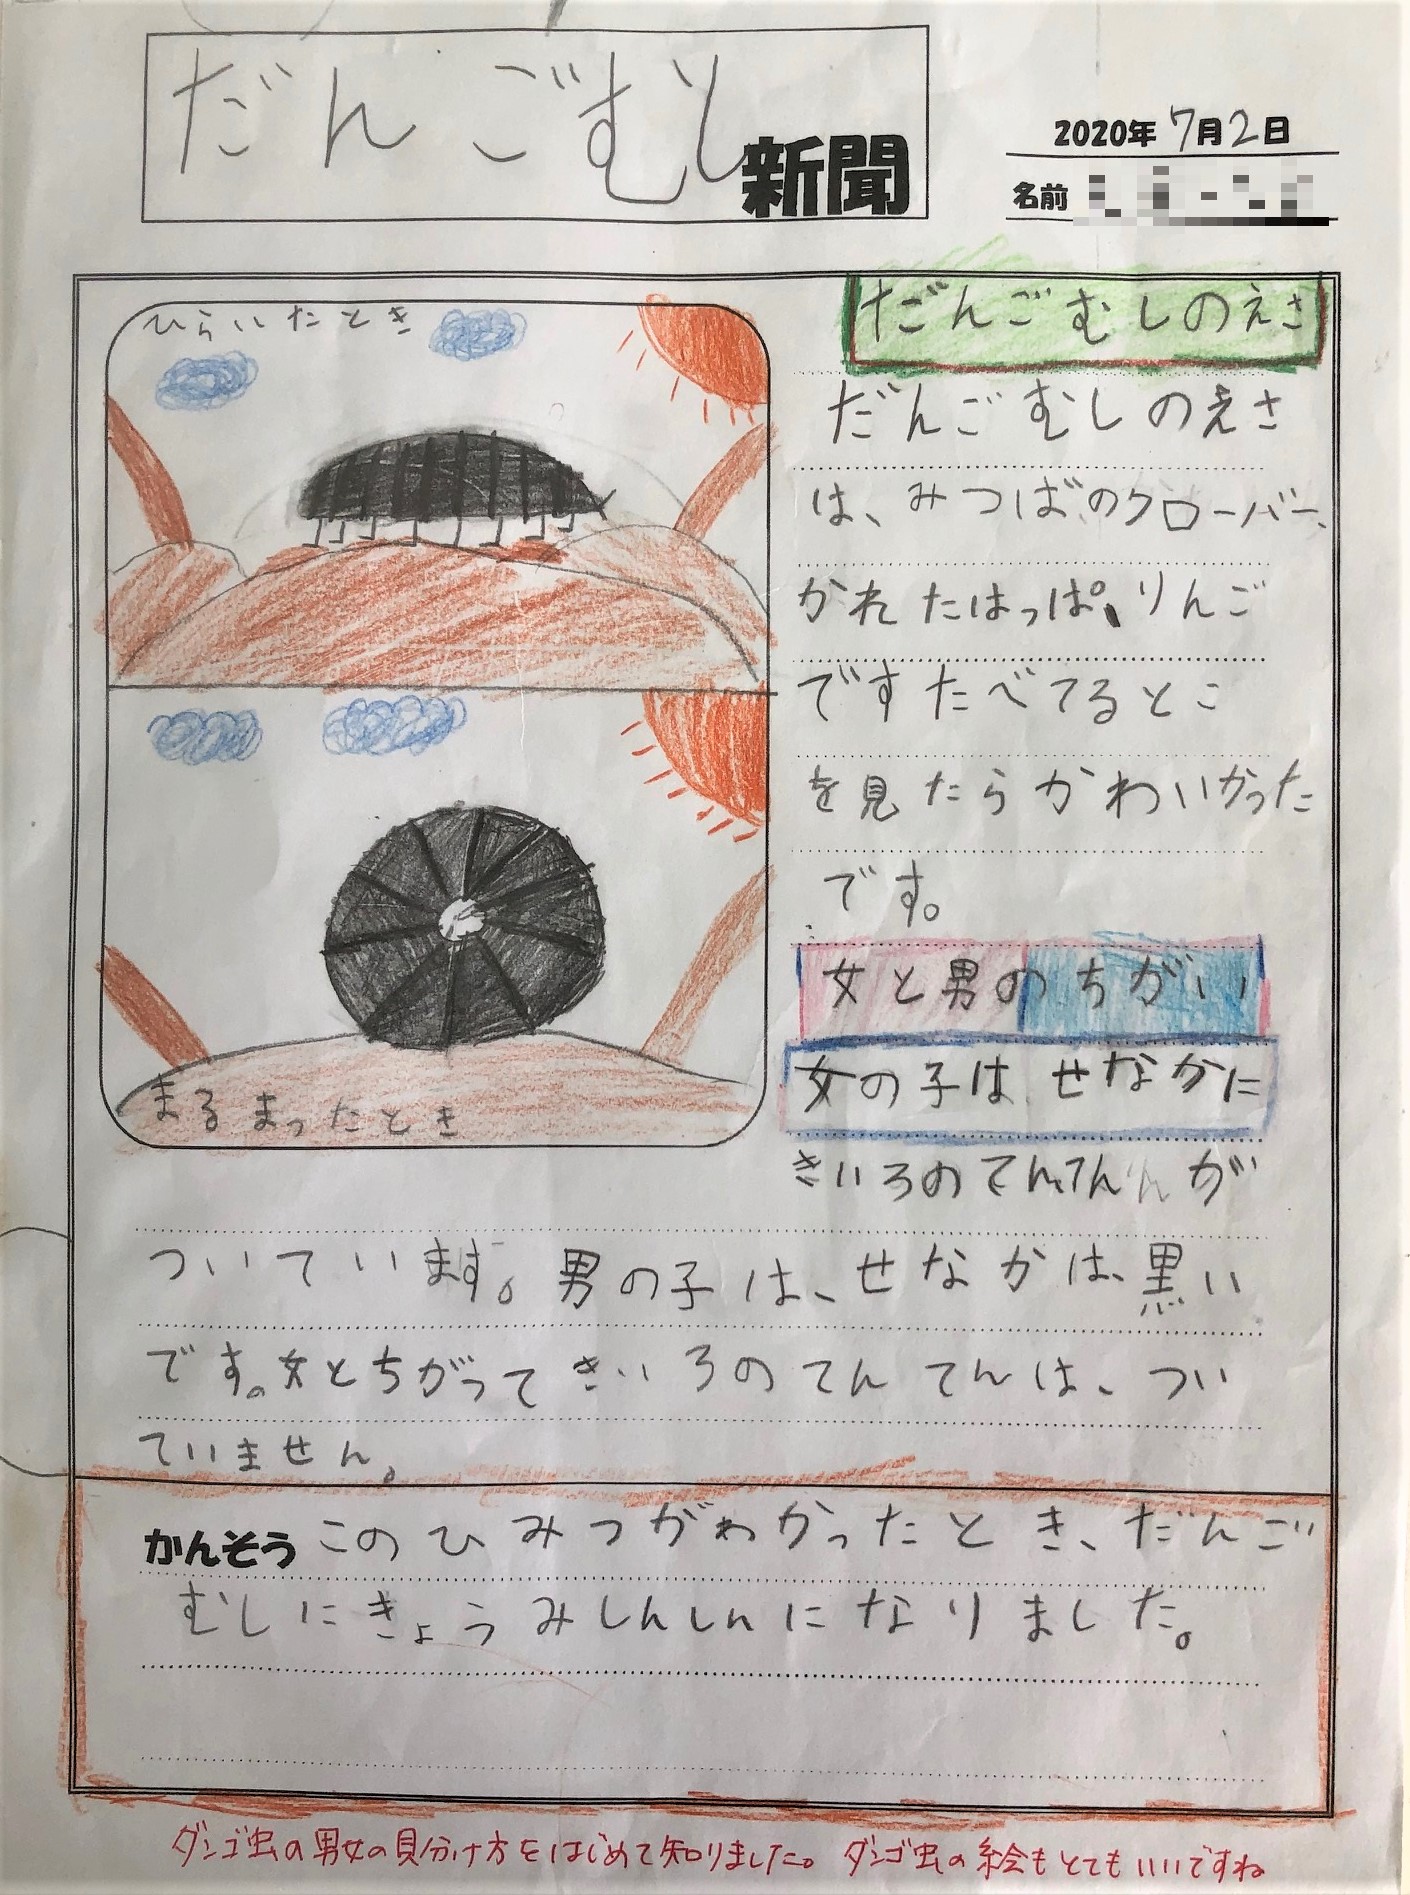 だんごむし新聞
2020年7月2日
名前
ひらいたとき
まるまったとき
だんごむしのえさ
だんごむしのえさ
は、みつばのクローバー、
かれたはっぱ、りんご
ですたべてるとこ
を見たらかわいかった
です。
女と男のちがい
女の子は、せなかに
きいろのてんてんが
ついています。男の子は、せなかは、黒い
です。女とちがってきいろのてんてんは、つい
ていません。
かんそう このひみつがわかったとき、だんご
むしにきょうみしんしんになりました。
ダンゴ虫の男女の見分け方をはじめて知りました。ダンゴ虫の絵もとてもいいですね